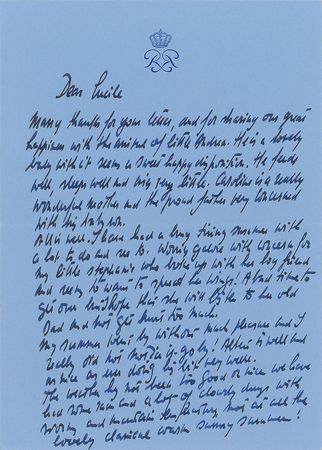 Dear Lucile
Many thanks for your letter, and for sharing our great
happiness with the arrival of little Andrea. He is a lovely
baby with it seems a sweet happy disposition. He feeds
well, sleeps well and cries very little. Caroline is a really
wonderful mother and the proud father very concerned
with his baby son.
All is well. I have had a long tiring summer with
a lot to do and see to. Worry galore with concern for
my little Stephanie who broke up with her boy friend
and seems to want to spread her wings! A bad time to
get over and I hope that she will listen to her old
Dad and not get hurt too much.
My summer went by without much pleasure and I
really did not notice it go by! Albert is well and
as nice as ever doing his bit very well.
The weather has not been too good or nice we have
had some rain and a lot of cloudy days with
and not at all the
lovely classical warm sunny summer!